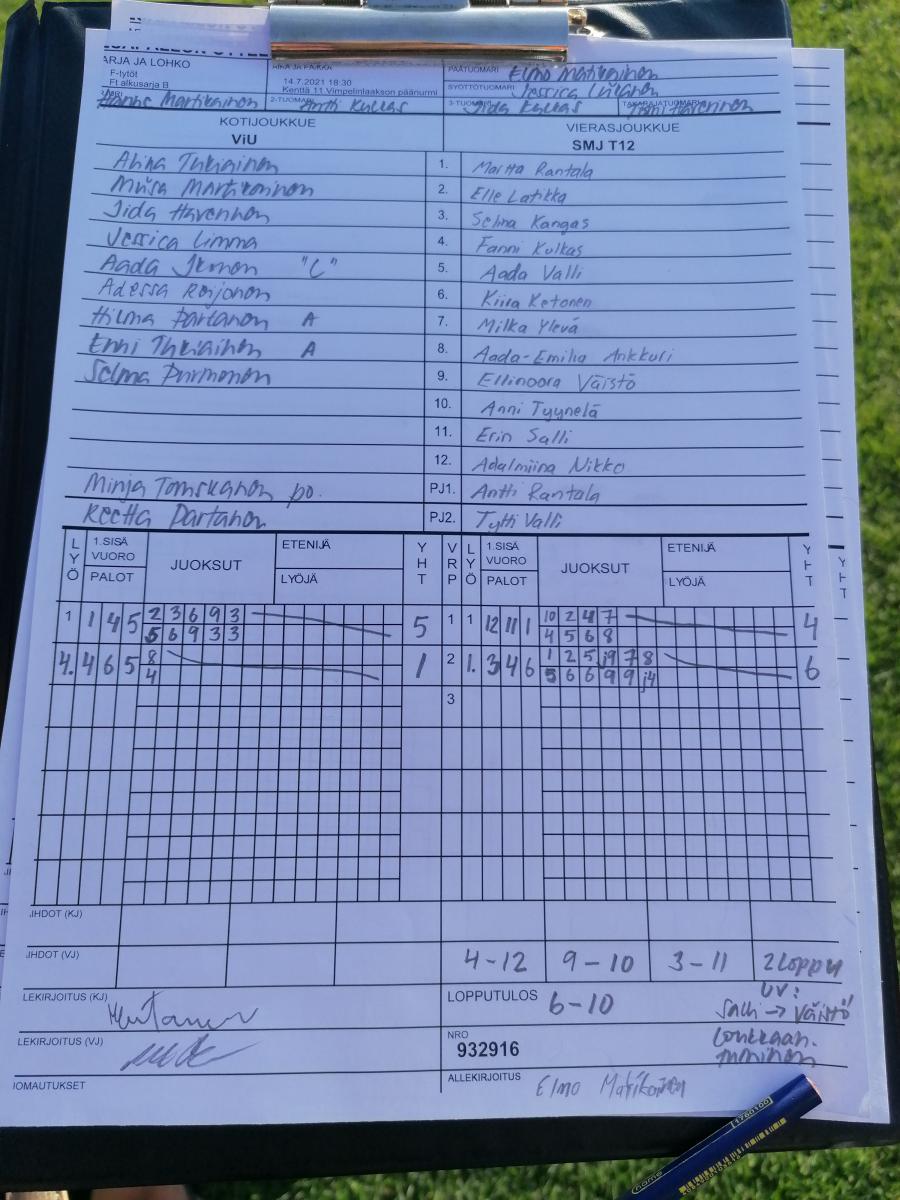 ARJA JA LOHKO
F-tytöt
Ft alkusarja B
14.7.2021 18:30
Kenttä 11 Vimpelinlaakson päänurmi
PÄÄTUOMARI Elmo Matikainen
SYÖTTÖTUOMARI Jessica
Hannu Martikainen 2-TUOMARI Antti Kulkas 3-TUOMARI Iida Kulkas TAKARAJATUOMARI
KOTIJOUKKUE VIERASJOUKKUE
ViU SMJ T12
Alina Tukiainen 1. Martta Rantala
Miisa Martikainen 2. Elle Latikka
Iida Haverinen 3. Selma Kangas
Jessica Limma 4. Fanni Kulkas
Aada Ikonen "C" 5. Aada Valli
Adessa Roijonen 6. Kiira Ketonen
Hilma Partanen A 7. Milka Ylevä
Enni Tukiainen A 8. Aada-Emilia Ankkuri
Selma Purmonen 9. Ellinoora Väistö
10. Anni Tyynelä
11. Erin Salli
12. Adalmiina Nikko
Minja Tomskanen po. PJ1. Antti Rantala
Reetta Partanen PJ2. Tytti Valli
LYÖ 1.SISÄ VUORO PALOT JUOKSUT ETENIJÄ LYÖJÄ YHT VRP LYÖ 1.SISÄ VUORO PALOT JUOKSUT ETENIJÄ LYÖJÄ YHT
1 1 4 5 2 3 6 9 3 5 1 1 12 11 1 10 2 4 7 4
5 6 9 3 3 4 5 6 8
4. 4 6 5 8 1 2 1. 3 4 6 1 2 5 j9 7 8 6
4 5 6 6 9 9 j4
3
IHDOT (KJ)
IHDOT (VJ) 4-12 9-10 3-11 2 Loppu
LEKIRJOITUS (KJ) LOPPUTULOS 6-10 UV:
Salli → Väistö
LEKIRJOITUS (VJ) NRO
932916 loukkaan.
tuminen
IOMAUTUKSET ALLEKIRJOITUS Elmo Matikainen
1760100